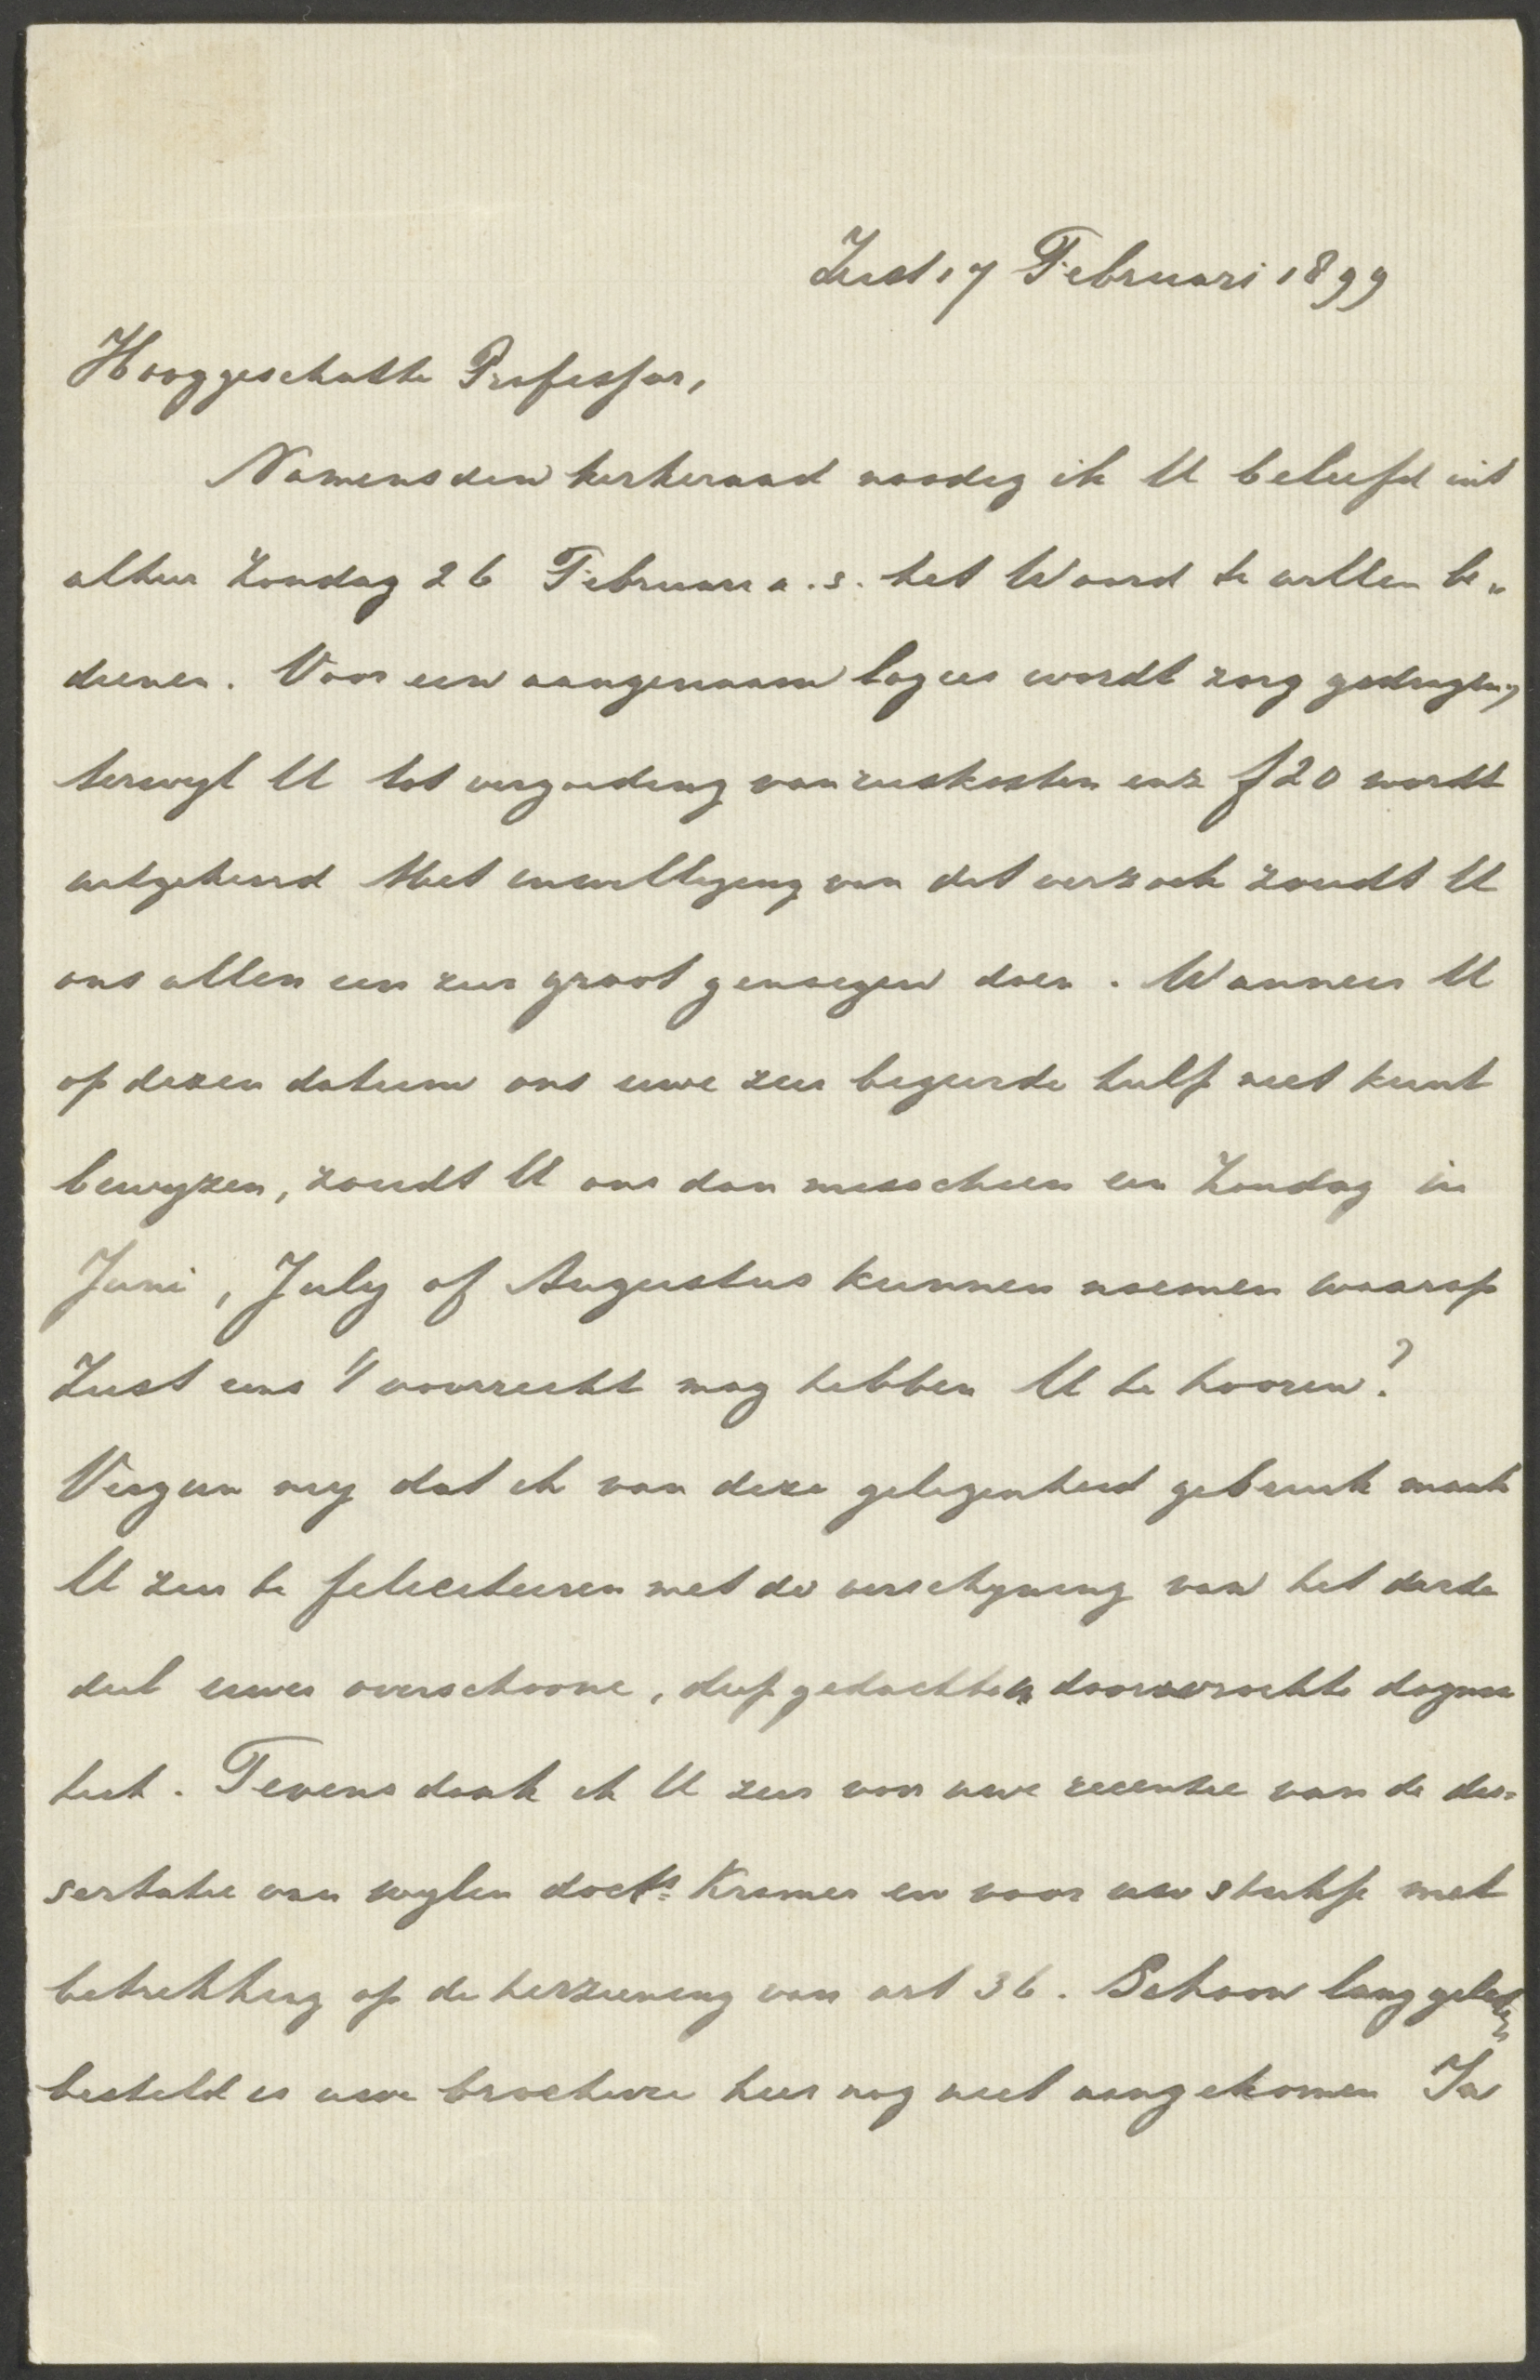 Zeist 17 Februari 1899
Hooggeschatte Professor,
Namens den kerkeraad noodig ik U beleefd uit
alhier Zondag 26 Februari a.s. het Woord te willen be„
dienen. Voor een aangenaam logies wordt zorg gedragen,
terwyl U tot vergoeding van reiskosten enz f20 wordt
uitgekeerd Met inwilliging van dit verzoek zoudt U
ons allen een zeer groot genoegen doen. Wanneer U
op dezen datum ons uwe zeer begeerde hulp niet kunt
bewyzen, zoudt U ons dan misschien een Zondag in
Juni, July of Augustus kunnen noemen waarop
Zeist eens 't voorrecht mag hebben U te hooren?
Vergun my dat ik van deze gelegenheid gebruik maak
U zeer te feliciteeren met de verschyning van het derde
deel uwer overschoone, diep gedachte doorwrochte dogma
tiek. Tevens dank ik U zeer voor uwe recentie van de dis=
sertatie van wylen doctr Kramer en voor uw stukje met
betrekking op de herziening van art 36. Schoon lang geleden
besteld is uwe brochure hier nog niet aangekomen In